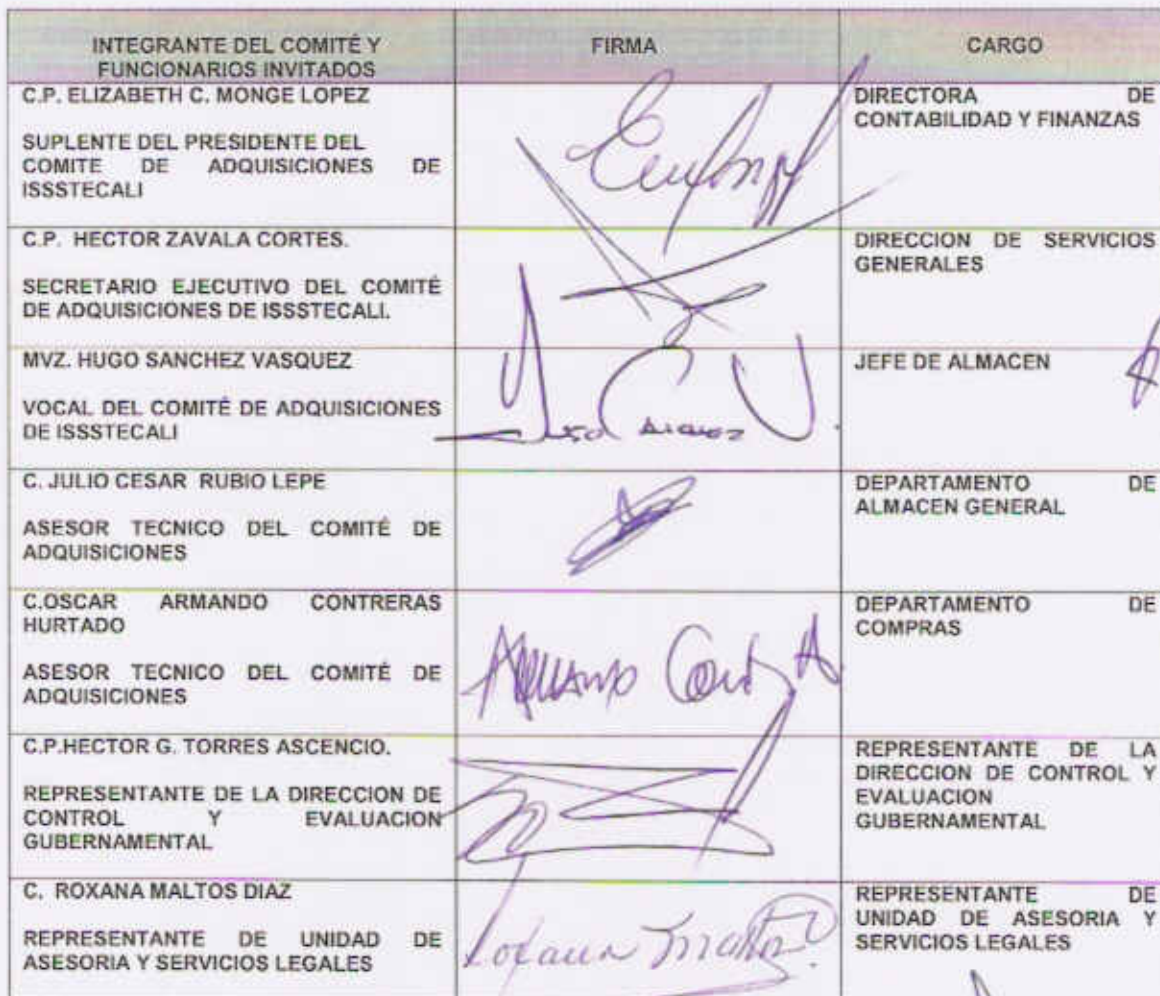 INTEGRANTE DEL COMITÉ Y
FUNCIONARIOS INVITADOS
FIRMA
CARGO
C.P. ELIZABETH C. MONGE LOPEZ
SUPLENTE DEL PRESIDENTE DEL
COMITE DE ADQUISICIONES DE
ISSSTECALI
DIRECTORA DE
CONTABILIDAD Y FINANZAS
C.P. HECTOR ZAVALA CORTES.
SECRETARIO EJECUTIVO DEL COMITÉ
DE ADQUISICIONES DE ISSSTECALI.
DIRECCION DE SERVICIOS
GENERALES
MVZ. HUGO SANCHEZ VASQUEZ
VOCAL DEL COMITÉ DE ADQUISICIONES
DE ISSSTECALI
JEFE DE ALMACEN
C. JULIO CESAR RUBIO LEPE
ASESOR TECNICO DEL COMITÉ DE
ADQUISICIONES
DEPARTAMENTO DE
ALMACEN GENERAL
C.OSCAR ARMANDO CONTRERAS
HURTADO
ASESOR TECNICO DEL COMITÉ DE
ADQUISICIONES
DEPARTAMENTO DE
COMPRAS
C.P.HECTOR G. TORRES ASCENCIO.
REPRESENTANTE DE LA DIRECCION DE
CONTROL Y EVALUACION
GUBERNAMENTAL
REPRESENTANTE DE LA
DIRECCION DE CONTROL Y
EVALUACION
GUBERNAMENTAL
C. ROXANA MALTOS DIAZ
REPRESENTANTE DE UNIDAD DE
ASESORIA Y SERVICIOS LEGALES
REPRESENTANTE DE
UNIDAD DE ASESORIA Y
SERVICIOS LEGALES